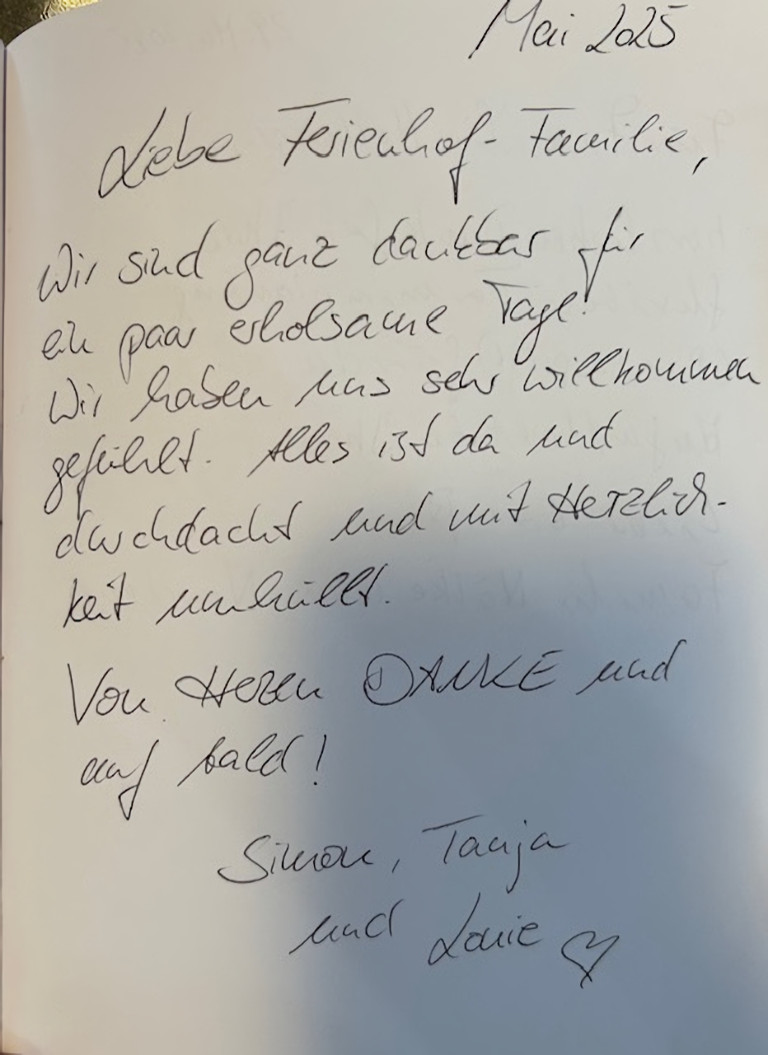 Mai 2025
Liebe Ferienhof-Familie,
Wir sind ganz dankbar für
ein paar erholsame Tage!
Wir haben uns sehr willkommen
gefühlt. Alles ist da und
durchdacht und mit Herzlich-
keit umhüllt.
Von Herzen DANKE und
auf bald!
Simon, Tanja
und